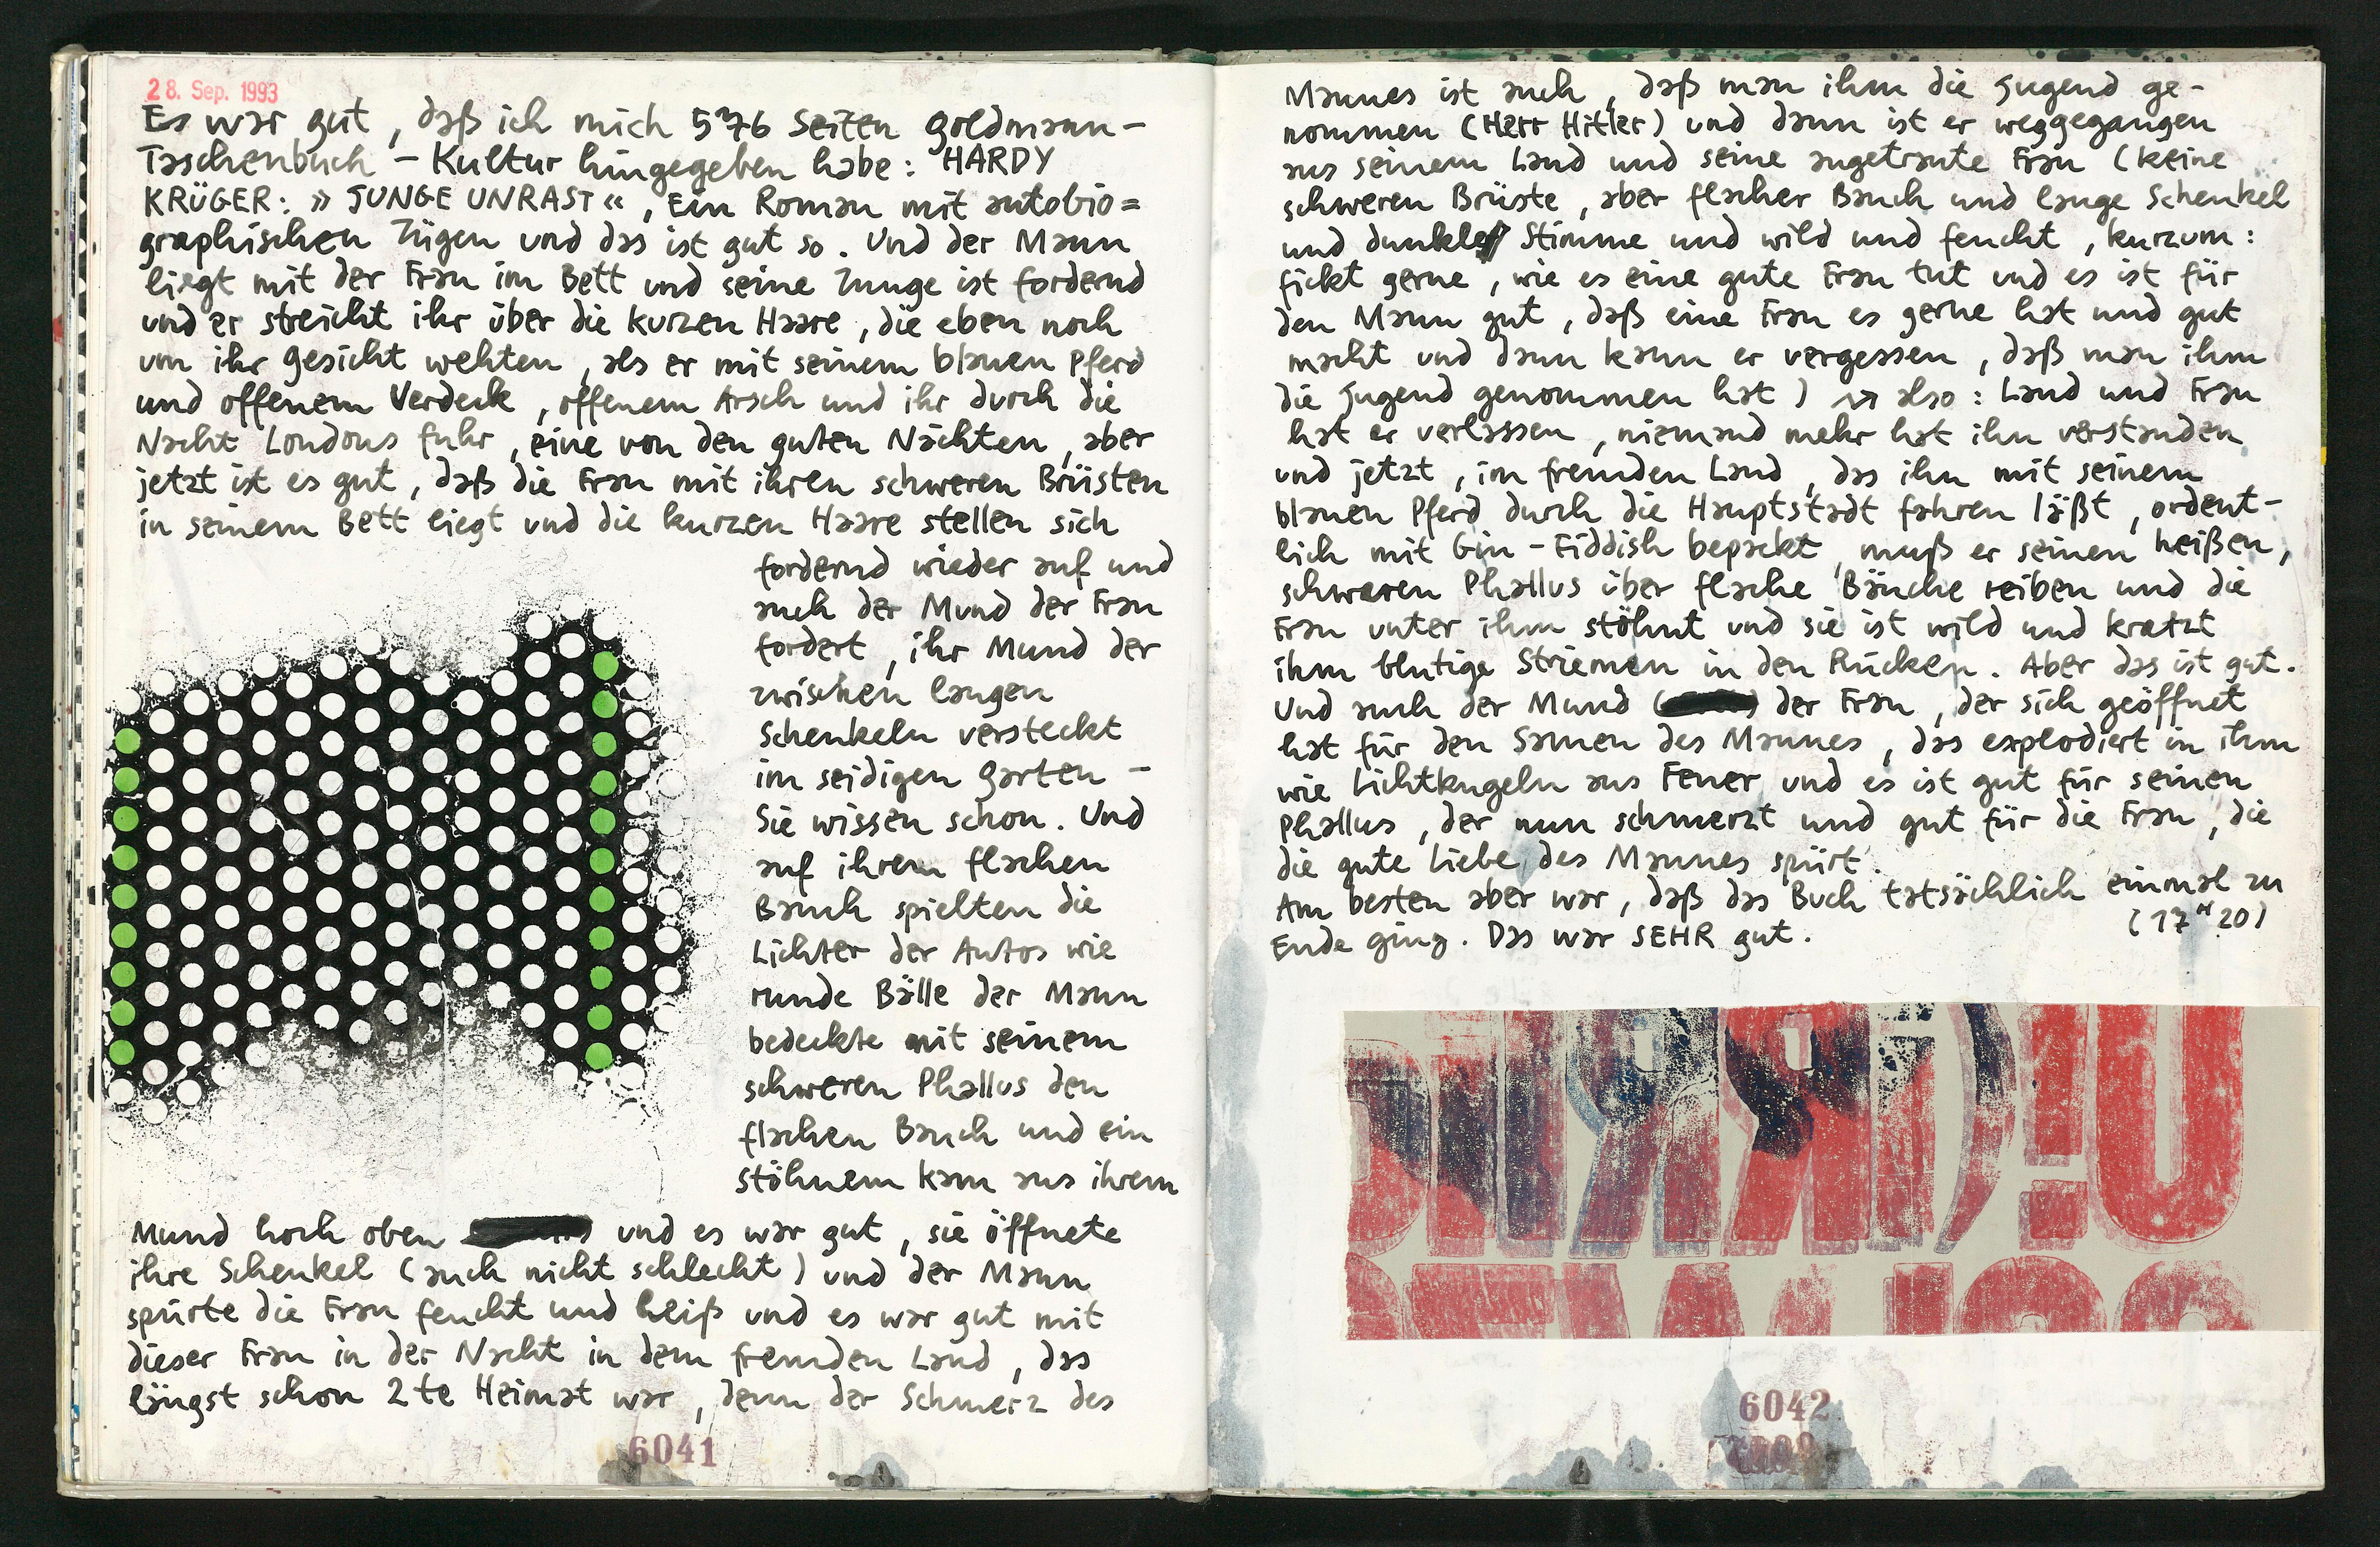 28. Sep. 1993
Es war gut, daß ich mich 576 Seiten Goldmann-
Taschenbuch-Kultur hingegeben habe: HARDY
KRÜGER: »JUNGE UNRAST«, Ein Roman mit autobio=
graphischen Zügen und das ist gut so. Und der Mann
liegt mit der Frau im Bett und seine Zunge ist fordernd
und er streicht ihr über die kurzen Haare, die eben noch
um ihr Gesicht wehten, als er mit seinem blauen Pferd
und offenem Verdeck, offenem Arsch und ihr durch die
Nacht Londons fuhr, eine von den guten Nächten, aber
jetzt ist es gut, daß die Frau mit ihren schweren Brüsten
in seinem Bett liegt und die kurzen Haare stellen sich
fordernd wieder auf und
auch der Mund der Frau
fordert, ihr Mund der
zwischen langen
Schenkeln versteckt
im seidigen Garten -
Sie wissen schon. Und
auf ihrem flachen
Bauch spielten die
Lichter der Autos wie
runde Bälle der Mann
bedeckte mit seinem
schweren Phallus den
flachen Bauch und ein
stöhnen kam aus ihrem
Mund hoch oben und es war gut, sie öffnete
ihre Schenkel (auch nicht schlecht) und der Mann
spürte die Frau feucht und heiß und es war gut mit
dieser Frau in der Nacht in dem fremden Land, das
längst schon 2te Heimat war, denn der Schmerz des
6041
Mannes ist auch, daß man ihm die Jugend ge-
nommen (Herr Hitler) und dann ist er weggegangen
aus seinem Land und seine angetraute Frau (keine
schweren Brüste, aber flacher Bauch und lange Schenkel
und dunkle Stimme und wild und feucht, kurzum:
fickt gerne, wie es eine gute Frau tut und es ist für
den Mann gut, daß eine Frau es gerne hat und gut
macht und dann kann er vergessen, daß man ihm
die Jugend genommen hat) also: Land und Frau
hat er verlassen, niemand mehr hat ihn verstanden
und jetzt, im fremden Land, das ihn mit seinem
blauen Pferd durch die Hauptstadt fahren läßt, ordent-
lich mit Gin-Fiddish bepackt, muß er seinen heißen,
schweren Phallus über flache Bäuche reiben und die
Frau unter ihm stöhnt und sie ist wild und kratzt
ihm blutige Striemen in den Rücken. Aber das ist gut.
Und auch der Mund der Frau, der sich geöffnet
hat für den Samen des Mannes, das explodiert in ihm
wie Lichtkugeln aus Feuer und es ist gut für seinen
Phallus, der nun schmerzt und gut für die Frau, die
die gute Liebe des Mannes spürt.
Am besten aber war, daß das Buch tatsächlich einmal zu
Ende ging. Das war SEHR gut. (17 H 20)
6042